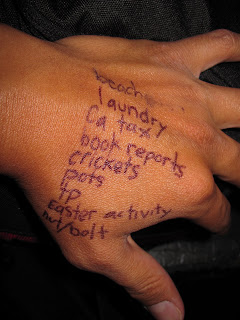 beach
laundry
Ca tax
book reports
crickets
pots
TP
Easter activity
nut/bolt